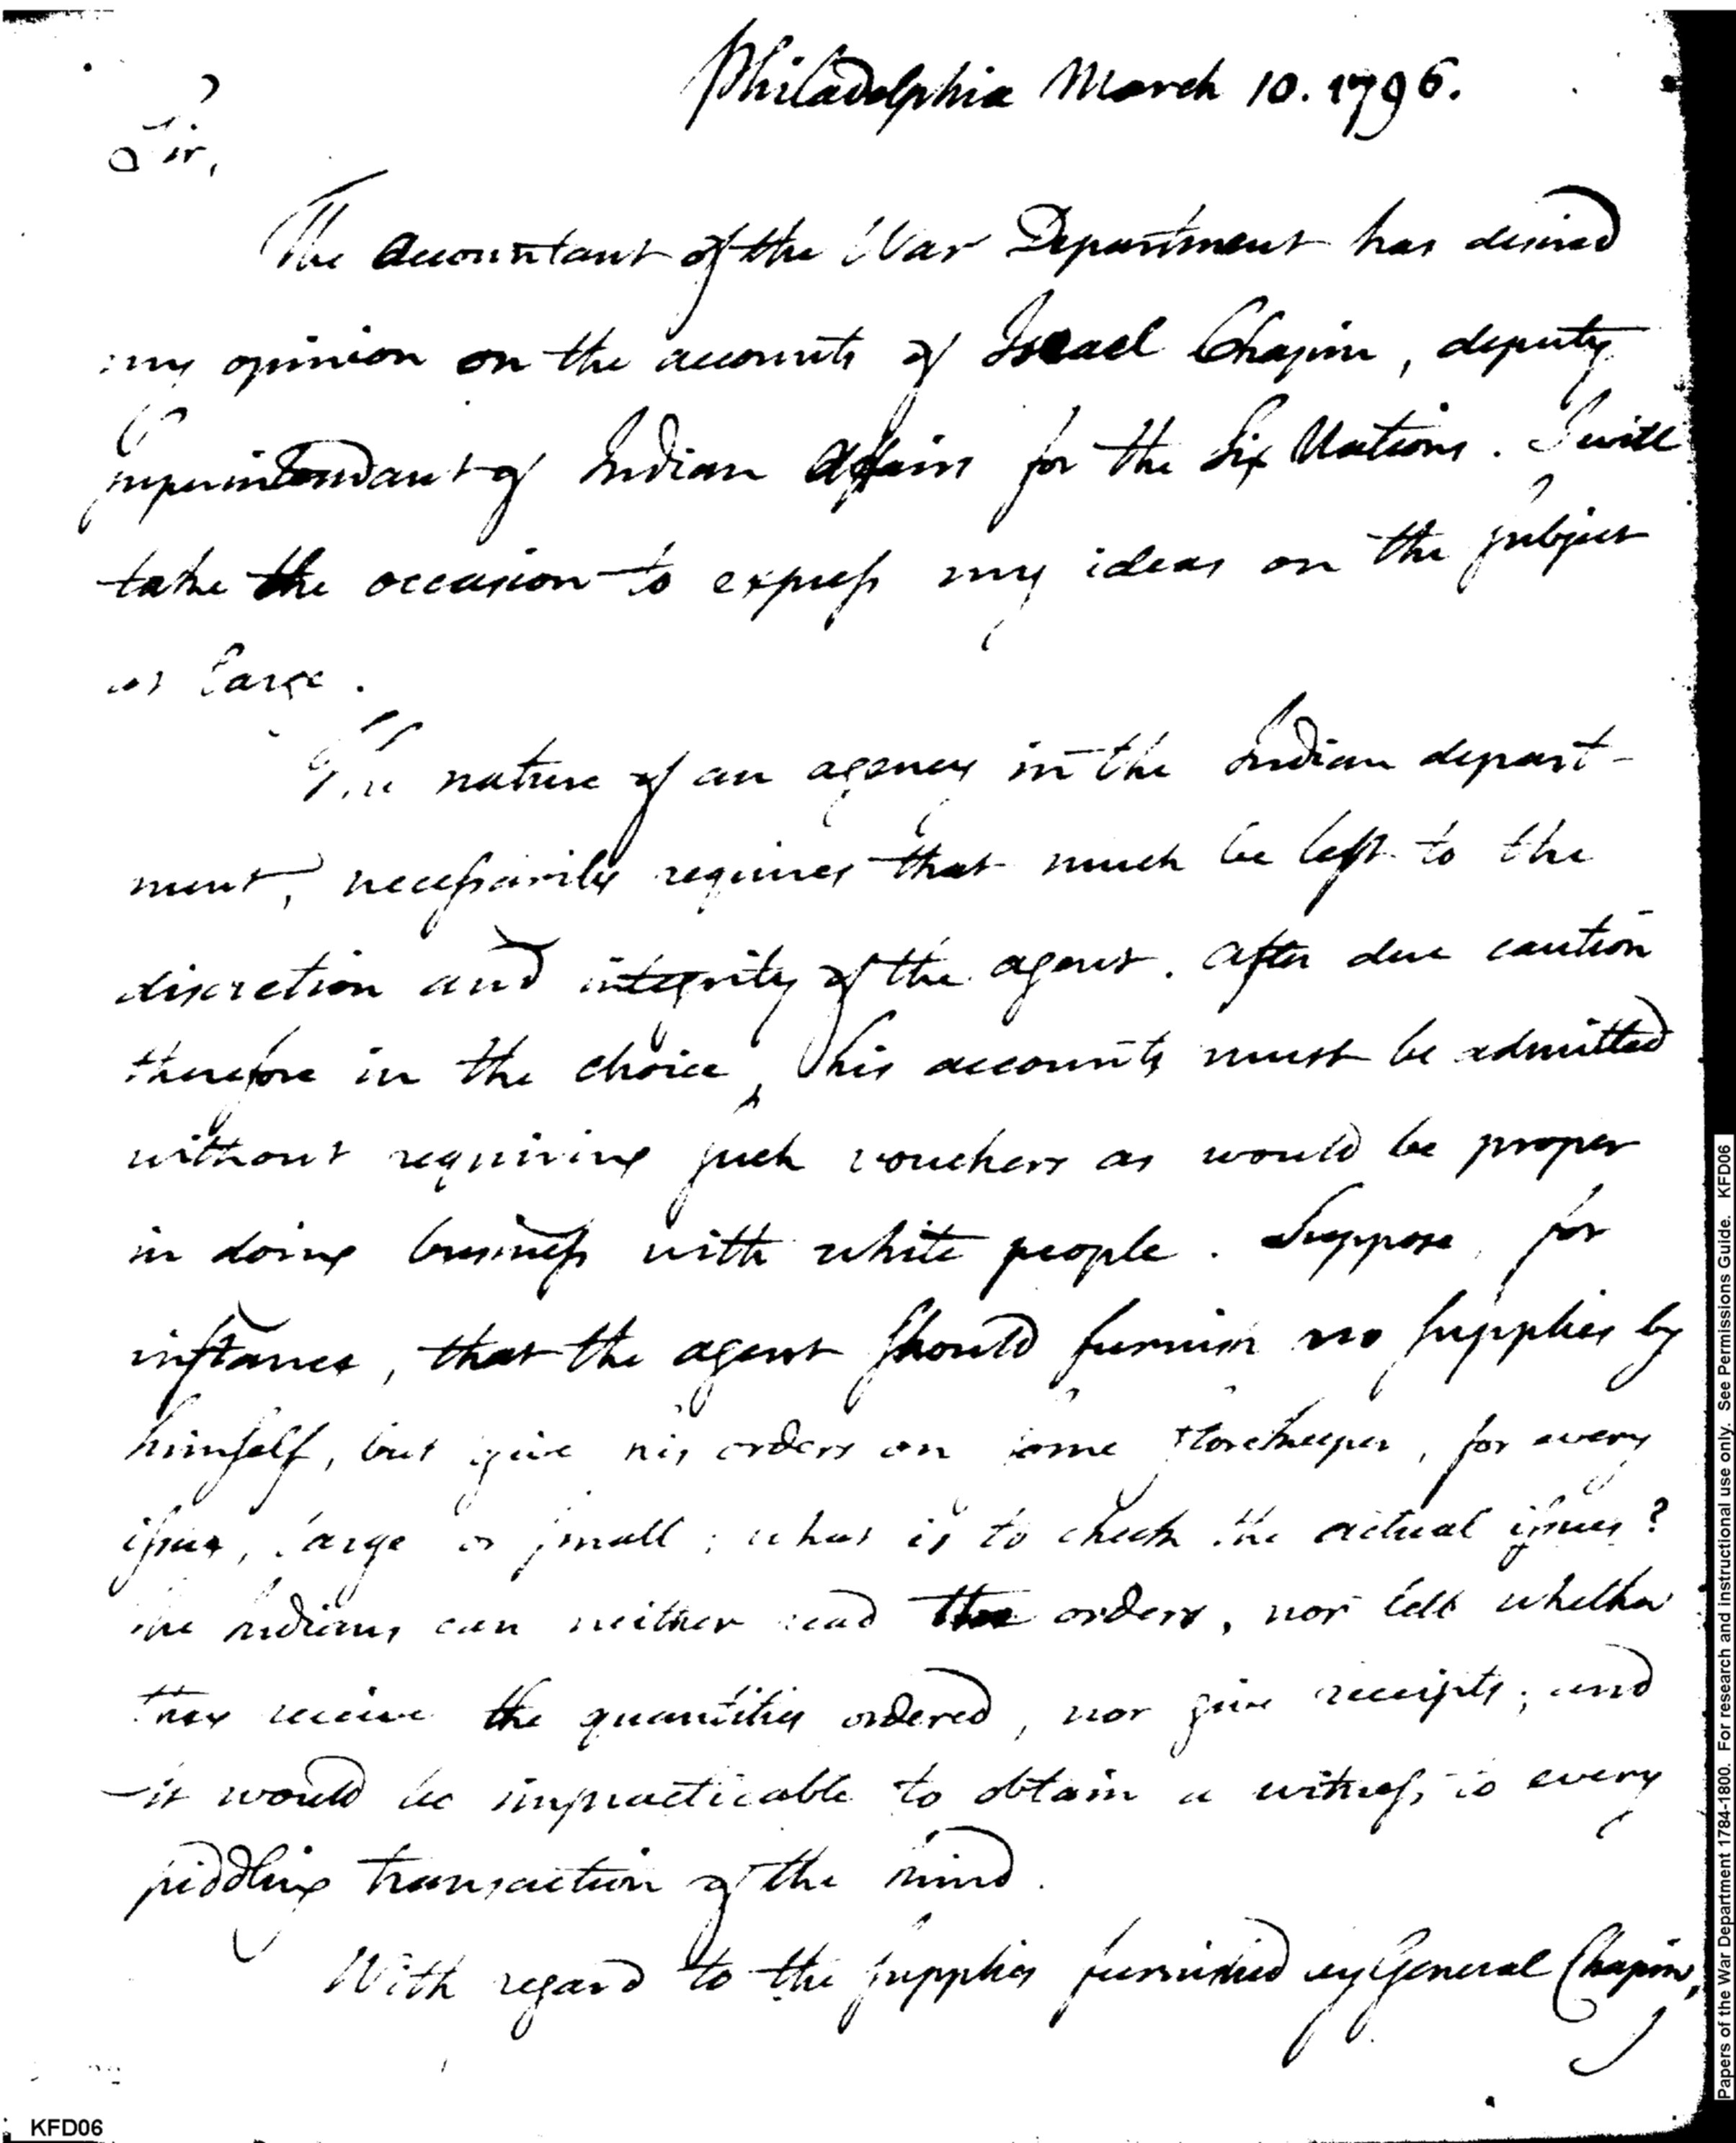 Philadelphia March 10. 1796.
Sir,
The Accountant of the War Department has desired
my opinion on the accounts of Israel Chapin, deputy
superintendant of Indian Affairs for the Six Nations. I will
take the occasion to express my ideas on the subject
at large.
The nature of an agency in the Indian depart-
ment, necessarily requires that much be left to the
discretion and integrity of the agent. After due caution
therefore in the choice, his accounts must be admitted
without requiring such vouchers as would be proper
in doing business with white people. Suppose, for
instance, that the agent should furnish no supplies by
himself, but give his orders on some storekeeper, for every
issue, large or small; what is to check the actual issues?
The Indians can neither read the orders, nor tell whether
they receive the quantities ordered, nor give receipts; and
it would be impracticable to obtain a witness to every
piddling transaction of the kind.
With regard to the supplies furnished by General Chapin,
KFD06
Papers of the War Department 1784-1800. For research and instructional use only. See Permissions Guide. KFD06